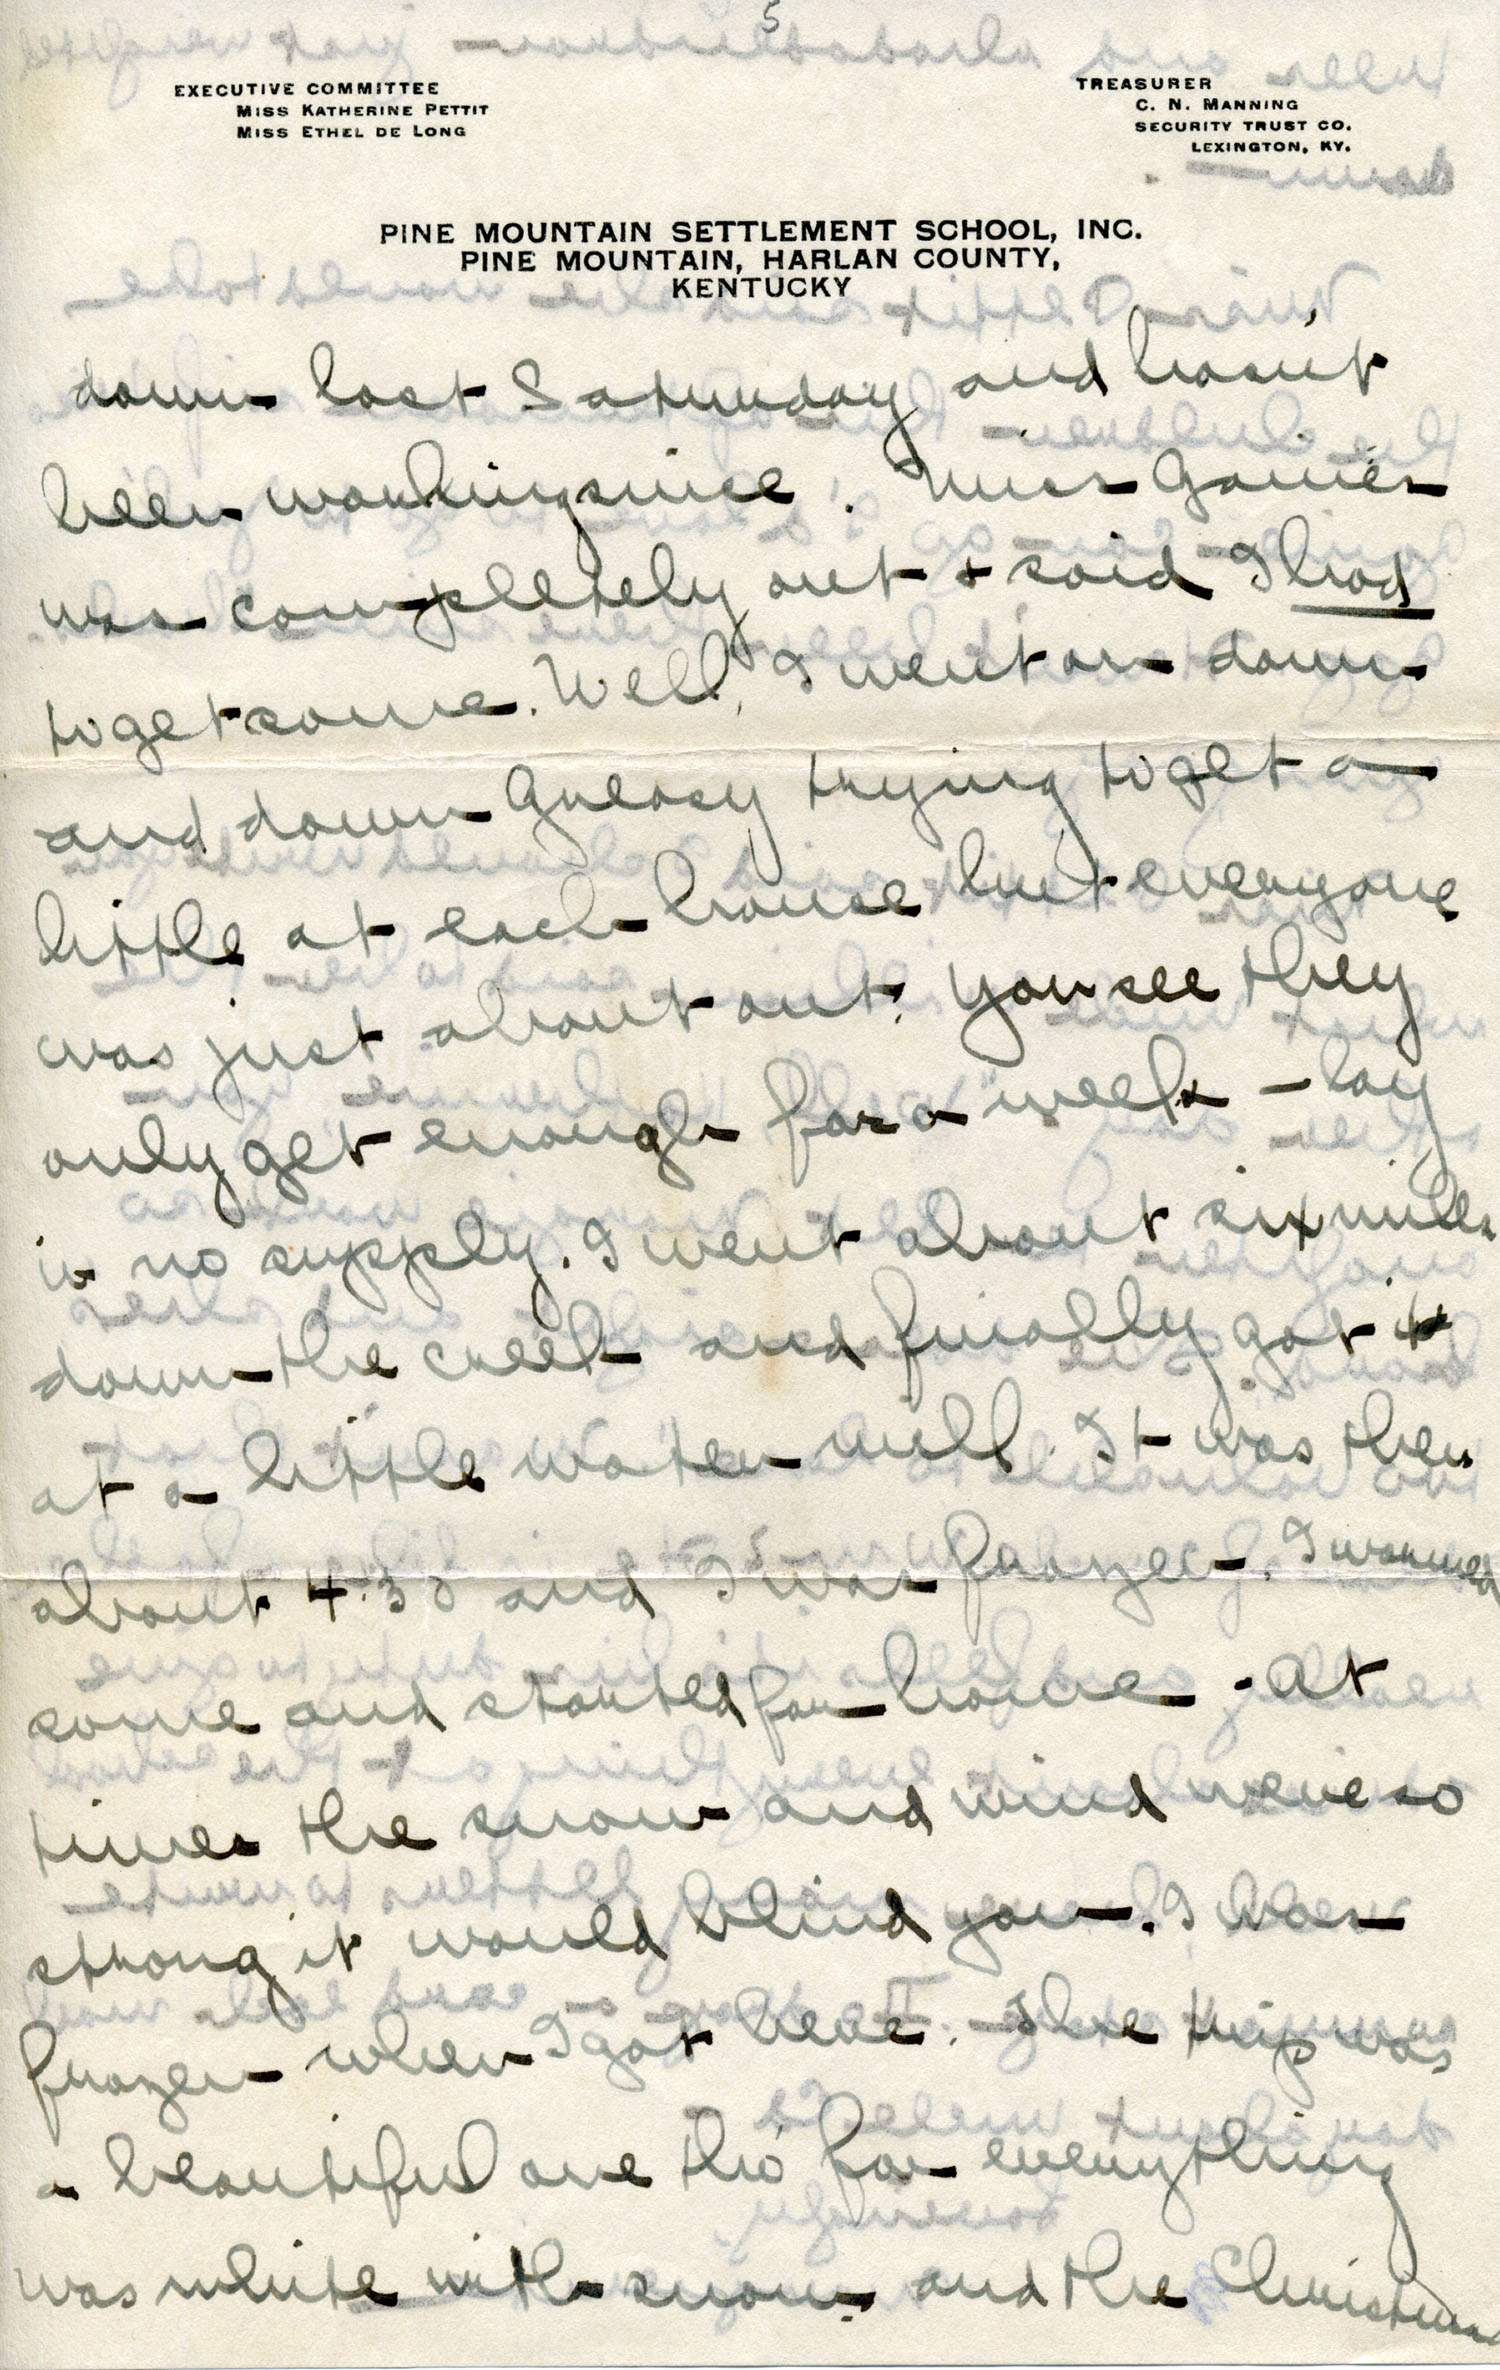 5
EXECUTIVE COMMITTEE
MISS KATHERINE PETTIT
MISS ETHEL DE LONG
TREASURER
C. N. MANNING
SECURITY TRUST CO.
LEXINGTON, KY.
PINE MOUNTAIN SETTLEMENT SCHOOL, INC.
PINE MOUNTAIN, HARLAN COUNTY,
KENTUCKY
down last Saturday and hasn't
been working since. Miss Gaines
was completely out & said I had
to get some. Well, I went on down
and down Greasy trying to get a
little at each house but everyone
was just about out. You see they
only get enough for a week – lay
in no supply. I went about six miles
down the creek and finally got it
at a little water mill. It was then
about 4:30 and I was frozen. I warmed
some and started for home. At
times the snow and wind were so
strong it would blind you. I was
frozen when I got here. The trip was
a beautiful one tho' for everything
was white with snow and the Christmas